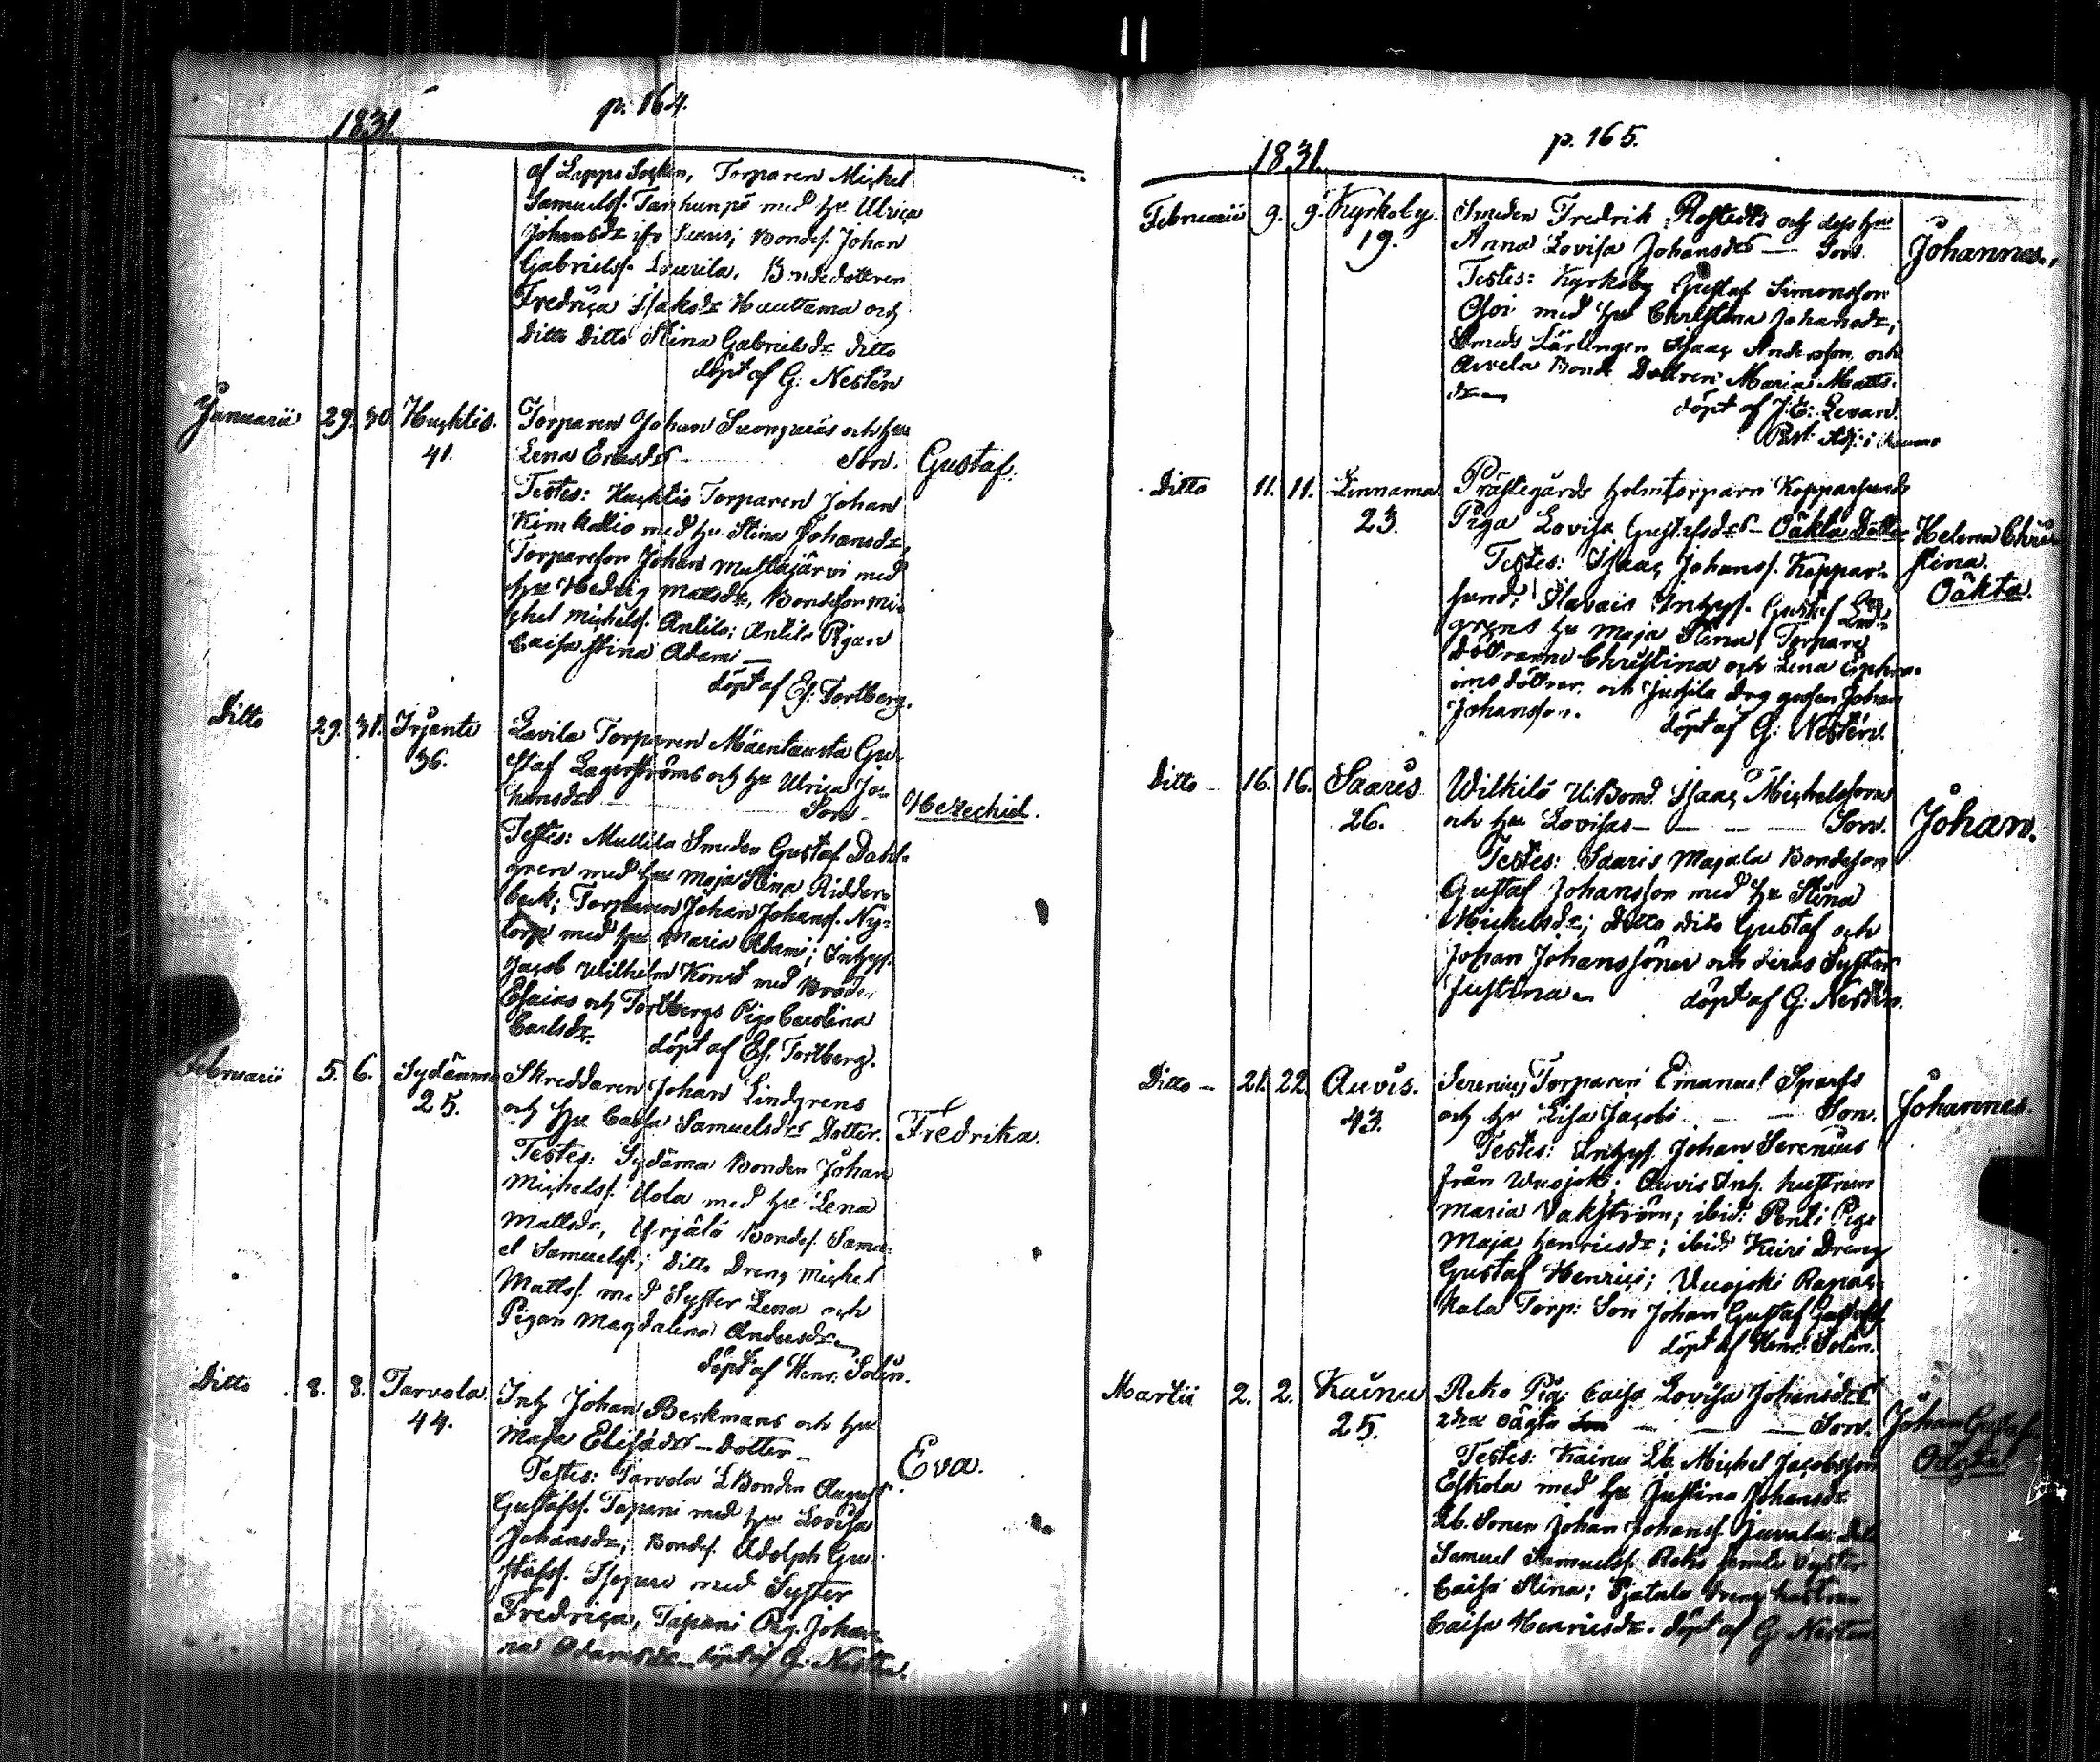 p. 164.
1831.
af Lappo Socken, Torparen Michel
Samuelss. Tanhunpä med hu Ulrica
Johansdr ifr Saaris; Bondes. Johan
Gabrielss. Laurila. Bondedottren
Fredrica Isaksdr Huutama och
Ditto Ditto Stina Gabrielsdr ditto
döpt af G: Nestén
Januarii 29. 30 Huchtis. Torparen Johan och hu
41. Lena Ericsdrs Son. Gustaf.
Testes: Huchtis Torparen Johan
Kimkallio med hu Stina Johansdr,
Torpareson Johan Mustajärvi med
hu Hedvig Mattsdr, Bondeson Mi-
chel Michelss. Antila; Antila Pigan
Caisa Stina Adami
döpt af Es: Tortberg.
Ditto 29. 31. Irjente Lavila Torparen Mäentausta Gu-
36. staf Lagerströms och hu Ulrica Jo-
hansdrs Son. Hezechiel.
Testes: Mullila Smeden Gustaf Dahl-
gren med hu Maja Stina Ridder-
beck; Torparen Johan Johanss. Ny-
torp med hu Maria Adami; Inhys.
Jacob Wilhelm Konst med Broder
Esaias och Tortbergs Piga Carolina
Carlsdr. döpt af Es. Tortberg.
Februarii 5. 6. Sydänma Skreddaren Johan Lindgrens
25. och hu Caisa Samuelsdrs Dotter. Fredrika.
Testes: Sydänma Bonden Johan
Michelss. Uola med hu Lena
Mattsdr, Yrjälä Bondes. Samu-
el Samuelss.; Ditto Dreng Michel
Mattss. med Syster Lena och
Pigan Magdalena Andersdr
döpt af Henr. Solin.
Ditto 8. 8. Tarvola. Inh Johan Beckmans och hu
44. Maja Elisädrs - dotter - Eva.
Testes: Tarvola LBonden August
Gustafss. Tapani med hu Lovisa
Johansdr; Bondes. Adolph Gu-
stafss. Isopere med Syster
Fredrica, Tapani Pig. Johan-
na Adamsdr - döpt af G. Nestén.
p. 165.
1831.
Februarii 9. 9. Kyrkoby. Smeden Fredrik Rostedts och dess hu
19. Anna Lovisa Johansdrs - Son. Johannes.
Testes: Kyrkoby Gustaf Simonsson
med hu Christina Johansdr;
Smeds Lärlingen Isaac Andersson och
Arvela Bonde Dottren Maria Matts-
dr - döpt af J. E: Levan.
Past. Adj: i
Ditto 11. 11. Linnama Prästegårds holmtorparn Kopparsunds
23. Piga Lovisa Gustafsdrs - Oäkta Dotter Helena Chri-
stina.
Oäkta.
Testes: Isaac Johanss. Koppar-
sund; Slavais Inhys. Gustaf Lind-
grens hu Maja Stina; Torpare
döttrarne Christina och Lena Ephra-
ims döttrar och Jussila drg gossen Johan
Johansson. döpt af G: Nestén.
Ditto - 16. 16. Saaris Wilkilä U.Bond. Isaac Michelssons
26. och hu Lovisas - - - - Son. Johan.
Testes: Saaris Majala Bondeson
Gustaf Johansson med hu Stina
Michelsdr; ditto dito Gustaf och
Johan Johanssöner och deras Syster
Justina - döpt af G. Nestén.
Ditto - 21. 22. Auvis. Serenius Torparen Emanuel Sparfs
43. och hu Lisa Jacobi - - Son. Johannes.
Testes: Inhys. Johan Serenius
från Wuojoki; Auvis Inh. hustrun
Maria Vakström; ibid: Penti Piga
Maja Henricsdr; ibid Keiri Dreng
Gustaf Henrici; Vuojoki Rapas-
kala Torp: Son Johan Gustaf
döpt af Henr: Solin.
Martii 2. 2. Kainu Reko Pig: Caisa Lovisa Johansdrs
25. 2dra oägta - - Son. Johan Gustaf.
Oägta
Testes: Kainu Lb. Michel Jacobsson
Eskola med hu Justina Johansdr
Lb. Sonen Johan Johanss. Juvala;
Samuel Samuelss. Reko Syster
Caisa Stina; dreng hustru
Caisa Henricsdr. döpt af G Nestén